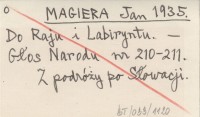 MAGIERA Jan 1935.
Do Raju i Labiryntu. —
Głos Narodu nr 210-211.
Z podróży po Słowacji.
BT/OBB/1120